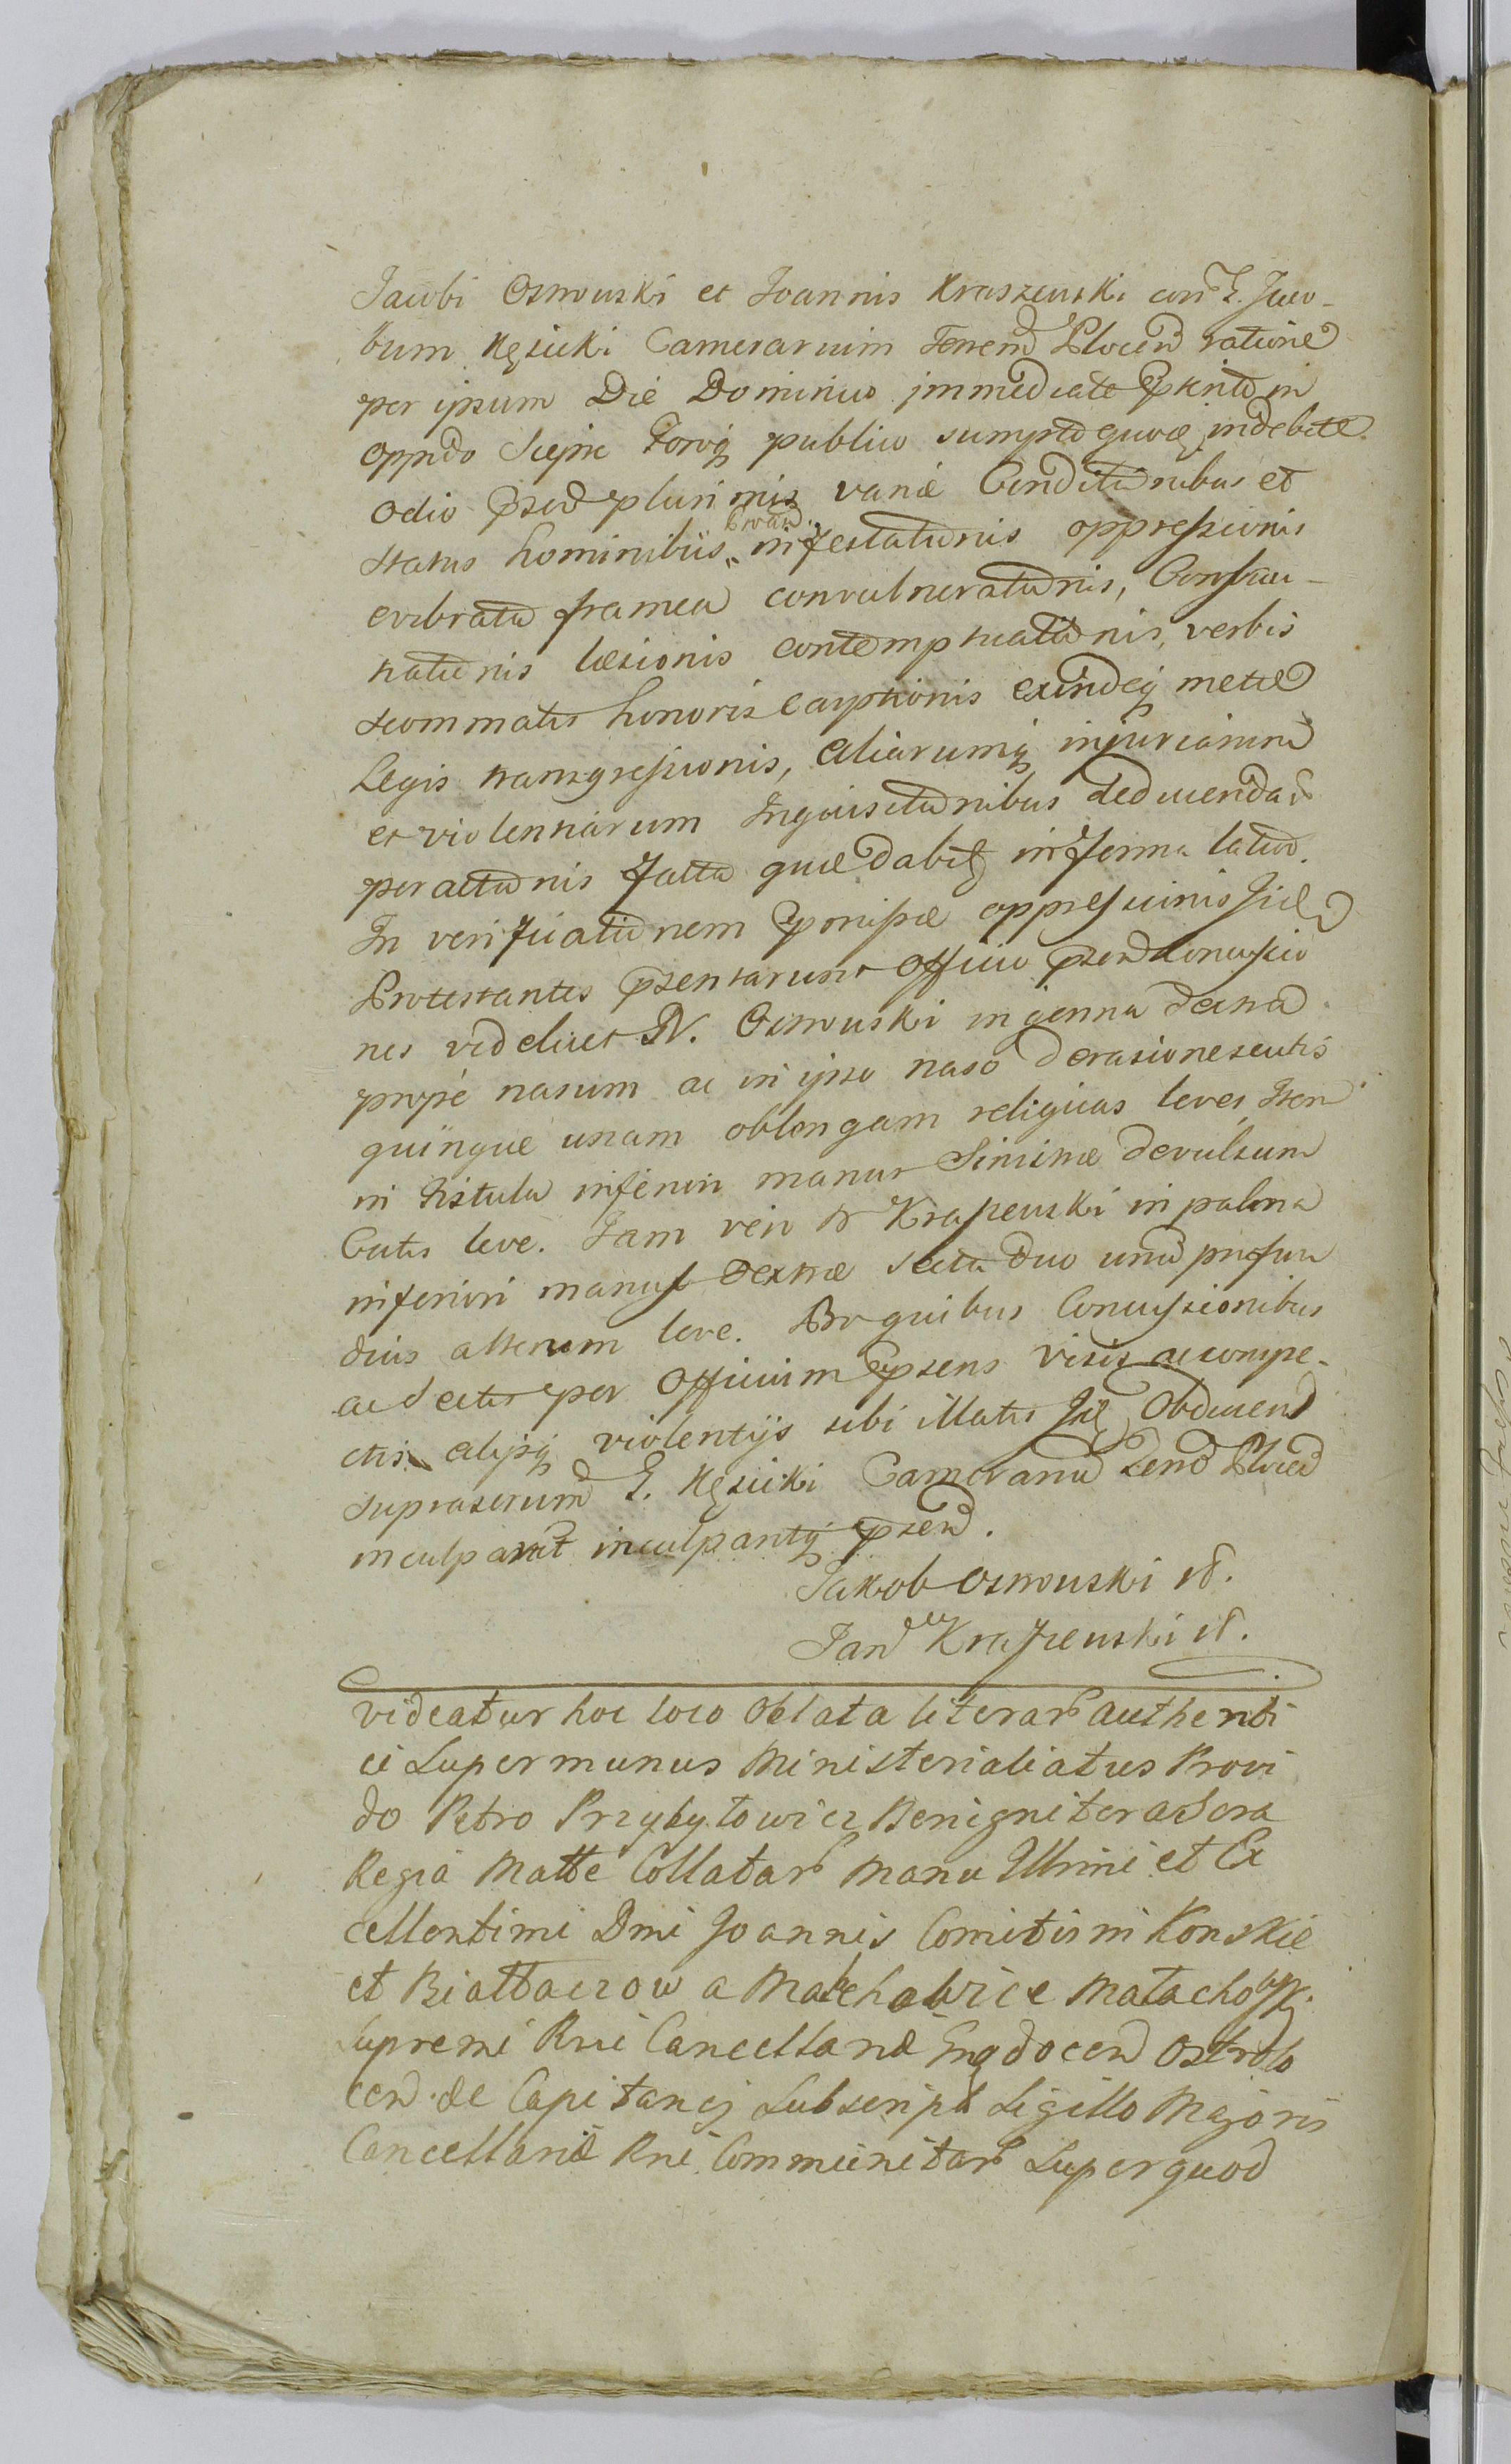 Jacobi Osmouski et Joannis Kraszeuski con E. Jaco-
bum Kęsicki Camerarium Terren Plocen ratione
per ipsum Die Dominico immediate pterito in
oppido Sieprc Foroq publico sumpto quove indebite
odio psen plurimis variæ Conditionibus et
status hominibus coram infestationis oppressionis
evibrata framea convulnerationis, Consau-
tiationis læsionis contemptuationis, verbis
scommatis honoris carptionis exindeq metæ
Legis transgressionis, Aliarumq injuriarum
et violentiarum Inquisitionibus deducendar
peractionis facta quæ dabit in forma latiori.
In verificationem pmissæ oppressionis Jidem
Protestantes psentarunt officio psen Concussio
nes videlicet N. Osmouski in genna dextra
propè nasum ac in ipso naso derasiones cutis
quinque unam oblongam reliquas leves, Item
in fistula inferiori manus Sinistræ devulsum
Cutis leve. Iam vero N Kraszeuski in palma
inferiori manus dextræ secta duo unum profun
dius alterum leve. Pro quibus Concussionibus
ac sectis per Officium psens visis ac conspe-
ctis alijsq violentijs sibi illatis Jid Obducend
suprascrum E. Kęsicki Camerariu Terre Plocen
inculparunt inculpantq psen.
Jakob Osmouski
Jan Kraszeuski
videatur hoc loco Oblata literar authenti
ci Super munus Ministerialiatus Provi
do Petro Przybytowicz Benigniter a Sera
Regia Matte Collatar manu Illmi et Ex
cellentimi Dni Joannis Comitis in Konskie
et Biattaczow a Małachowice Małachowski
Supremi Rni Cancellarii Grodecen Ostrolo
cen de Capitanej Subscript Sigillo Majoris
Cancellariæ Rni Communitar Super quod